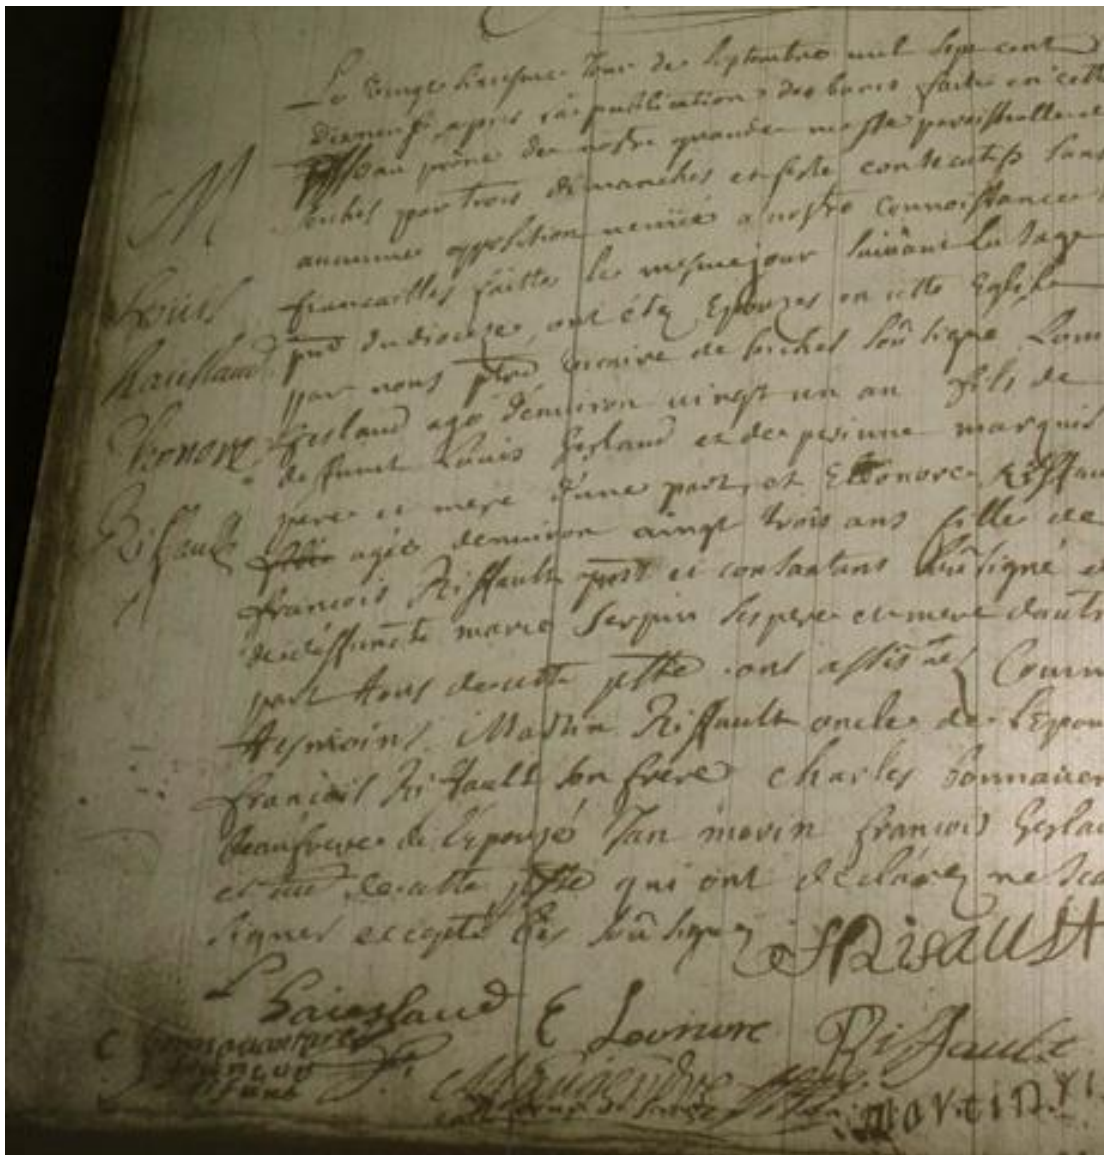 M
Louis
Ele onore
Riffault
Le vingt huiesme Jour de Septembre mil sept cent
dixneuf apres la publication des bans faite en cette
au prône de nostre grande messe paroissialle de
par trois dimanches et feste consecutifs sans
aucune opposition venüe a nostre connoissance
fiancailles faitte le mesme jour suivant l usage
du diocese, ont étéz Epouzes en cette Eglise
par nous vicaire de soûsigné Louis
Gesland agé d'environ vingt un an fils de
deffunct Louis Gesland et de perinne marquis
pere et mere d'une part, et Elleonore Riffau
agée denviron vingt trois ans fille de
francois Riffault et consantant soûsigné et
de deffuncte marie Serpin ses pere et mere dautre
part tous de cette psse ont assisté Comm
tesmoins Matin Riffault oncle de l'Epou
francois Riffault son frere charles bonnaven
beaufrere de l'Epouzé Jan morin francois Gesla
et de cette psse qui ont déclaréz ne sca
signer excepté les soûsignez
F Rifault
L Gaiesland E Leonore Riffault
C bonnaventure
martin Ri